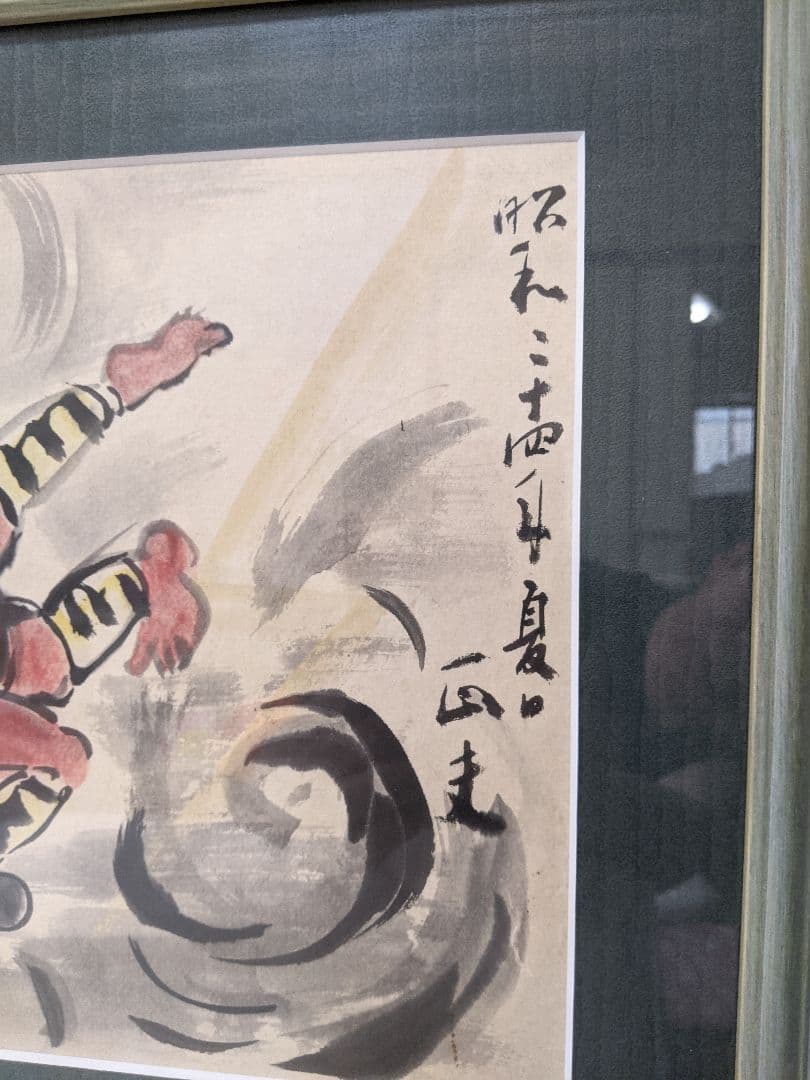 昭和二十四年夏日
正圭